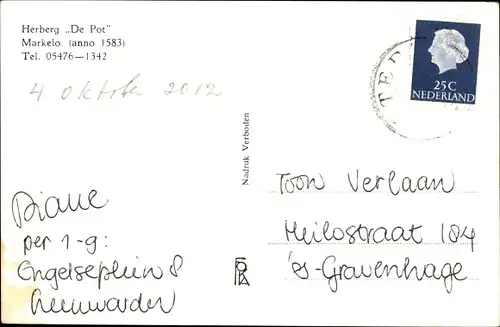 Herberg „De Pot"
Markelo. (anno 1583)
Tel. 05476—1342
4 oktober 2012
25C
NEDERLAND
Nadruk Verboden
Toon Verlaan
Heilostraat 184
's-Gravenhage
Diane
per 1-9:
Engelseplein 8
Leeuwarden